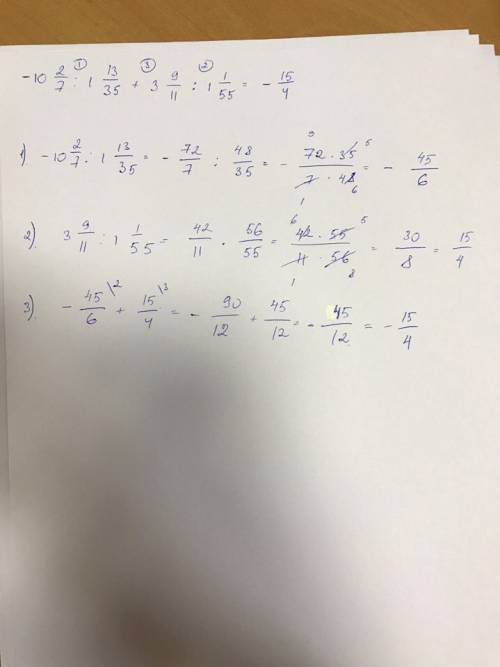 -10 2/7 : 1 13/35 + 3 9/11 : 1 1/55 = - 15/4
① ③ ②
1) -10 2/7 : 1 13/35 = - 72/7 : 48/35 = - 72 · 35 / 7 · 48 = - 45/6
9 5 1 6
2) 3 9/11 : 1 1/55 = 42/11 · 56/55 = 42 · 55 / 11 · 56 = 30/8 = 15/4
6 5 1 8
3) - 45/6 \2 + 15/4 \3 = - 90/12 + 45/12 = - 45/12 = - 15/4